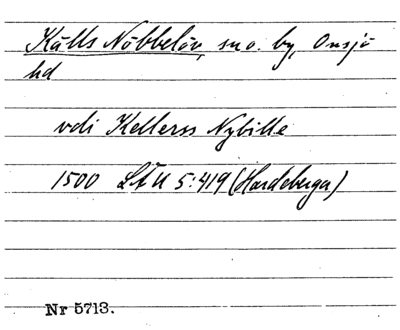 Källs Nöbbelöv, sn o. by, Onsjö
hd
vdi Kellerss Nybille
1500 LÄU 5:419 (Hardeberga)
Nr 5713.